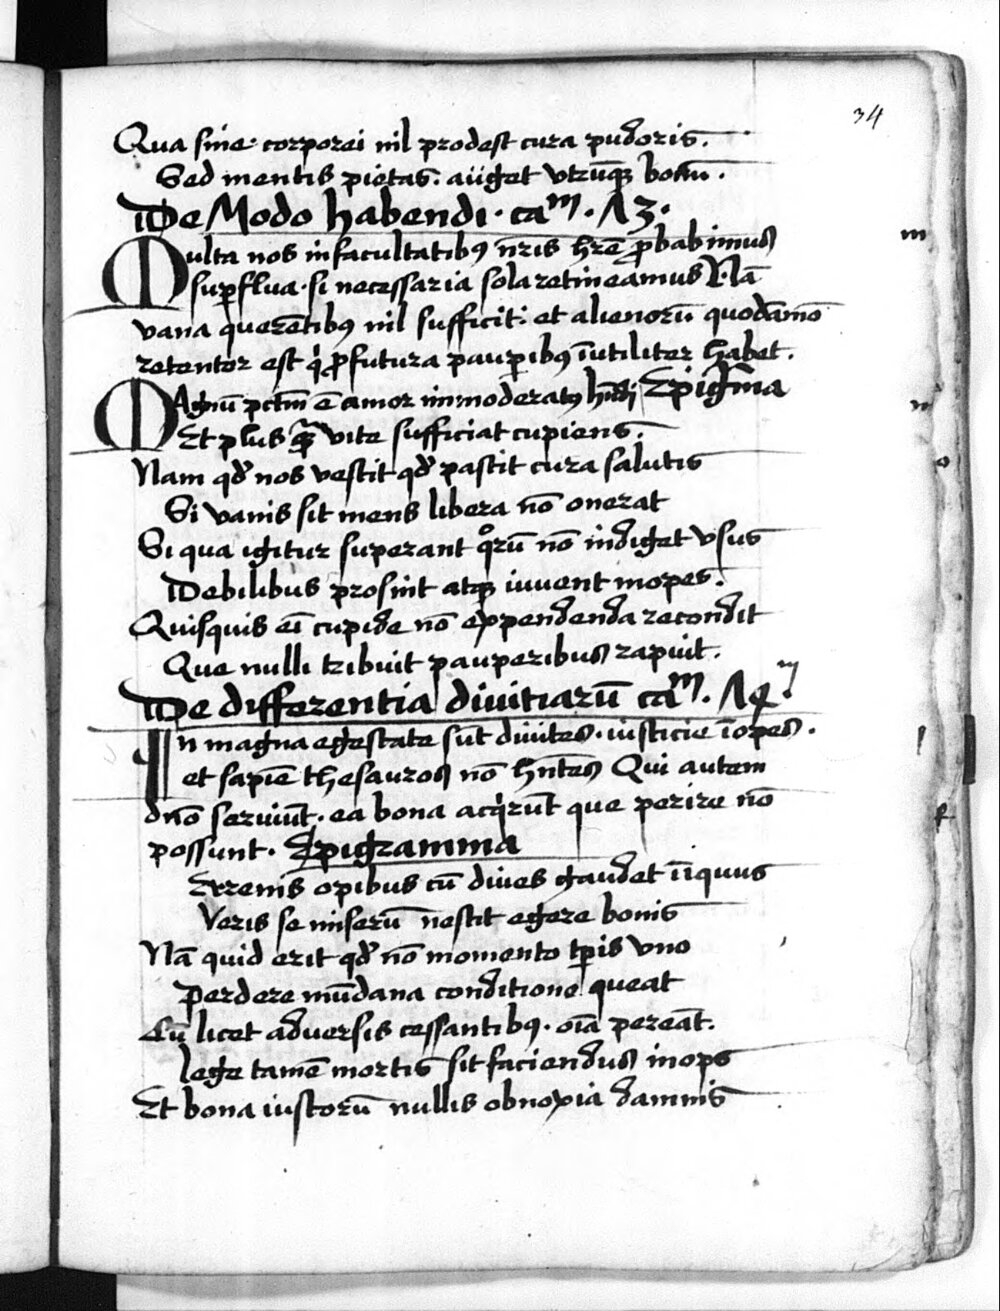 34
Qua sine corporei nil prodest cura pudoris.
Sed mentis pietas. auget utrūqꝫ bonū.
De Modo habendi. caᵐ. 13.
Multa nos in facultatibꝰ nr̄is hr̄e ꝓbabimus
suꝑflua. si necessaria sola retineamus Nā
vana querētibꝰ nil sufficit. et alienorū quodāmō
retentor est qͥ ꝓfutura pauꝑibꝰ īutiliter habet.
MAgnū pctm̄ ē amor immoderatꝰ hn̄di Epigr̄ma
Et plus qꝫ̄ vite sufficiat cupiens.
Nam qđ nos vestit qđ pascit cura salutis
Si vanis sit mens libera nō onerat
Si qua igitur superant qͦrū nō indiget vsus
Debilibus prosint atqꝫ iuvent inopes.
Quisquis eī cupide nō expendenda recondit
Que nulli tribuit pauperibus rapuit.
De differentia divitiarū caᵐ. 14ᵐ.
In magna egestate sūt divites. iusticie īopes.
et sapiē thesauros nō hn̄tes Qui autem
dn̄o serviūt. ea bona acqͥrūt que perire nō
possunt. Epigramma
Terrenis opibus cū dives gaudet iīquus
Veris se miserū nescit egere bonis
Nā quid erit qđ nō momento tꝑis vno
Perdere mūdana conditione queat
Cū licet adversis cessantibꝰ. oīa pereāt.
lege tamē mortis sit faciendus inops
Et bona iustorū nullis obnoxia damnis